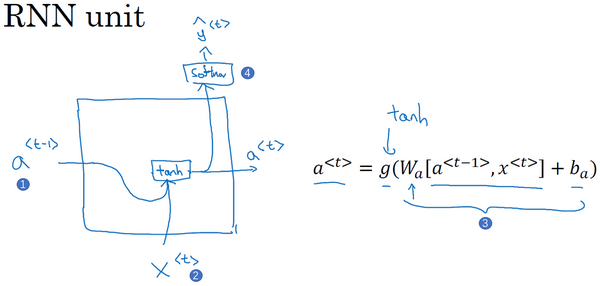 RNN unit
ŷ<t>
softmax 4
a<t-1>
1
tanh
a<t>
x<t> 2
tanh
a<t> = g(Wₐ[a<t-1>, x<t>] + bₐ)
3